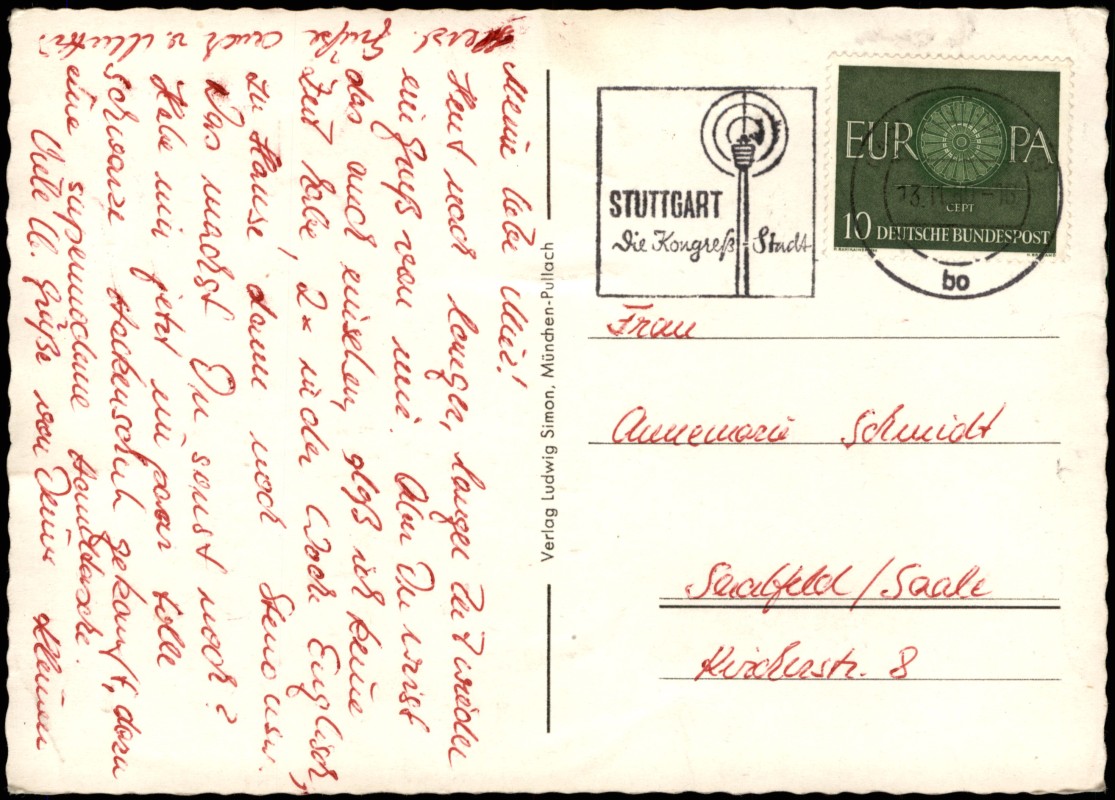 Meine liebe Mie!
Heut nach langer, langer Zeit wieder
ein Gruß von mir. Aber Du wirst
das auch einsehen, daß ich keine
Zeit habe! 2x in der Woche Englisch,
zu Hause! dann noch Steno usw.
Was machst Du sonst noch?
Habe mir jetzt ein paar tolle
schwarze Hackenschuh gekauft, dazu
eine supermoderne Handtasche.
Viele lb. Grüße von Deiner kleinen
Herzl. Grüße auch v. Mutti
Verlag Ludwig Simon, München-Pullach
STUTTGART
Die Kongreß-Stadt
EUROPA
CEPT
10 DEUTSCHE BUNDESPOST
13.11.
-18
bo
Frau
Annemarie Schmidt
Saalfeld/Saale
8